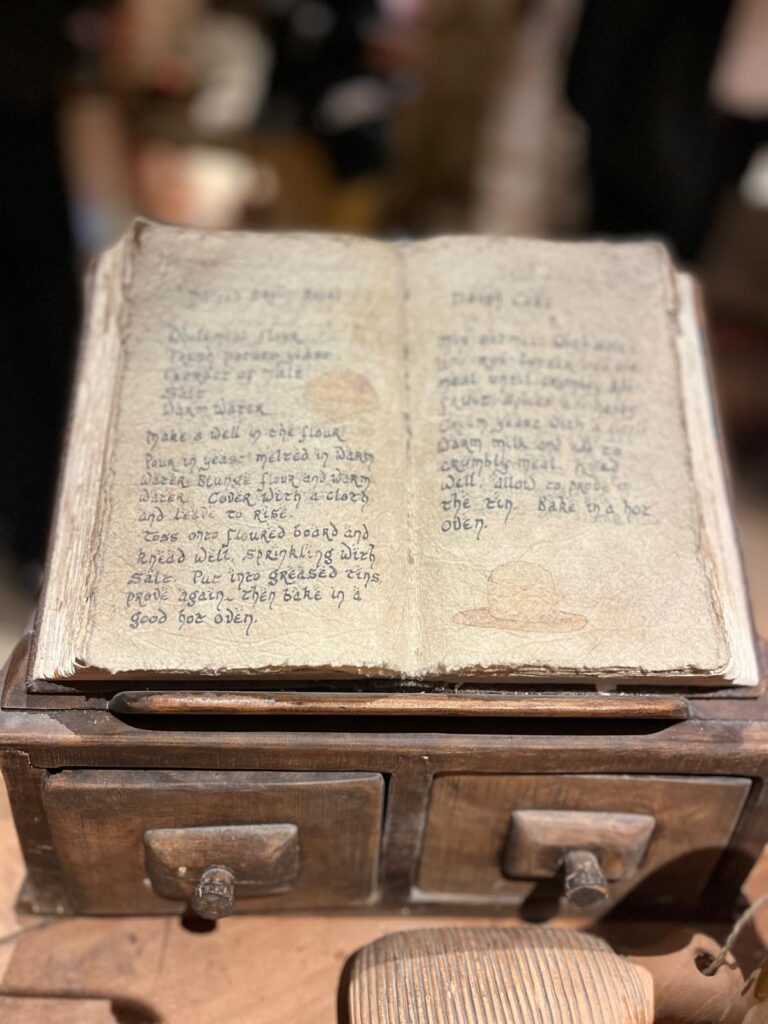 Wholemeal flour
Fresh potato yeast
Extract of Malt
Salt
Warm Water
Make a well in the flour
Pour in yeast melted in warm
water Plunge flour and warm
water Cover with a cloth
and leave to rise.
Toss onto floured board and
knead well, sprinkling with
salt. Put into greased tins
prove again. then bake in a
good hot oven.
Dough Cake
meal until crumbly. Add
fruit, spices
Cream yeast with a little
warm milk and add to
crumbly meal. Knead
well, allow to prove in
the tin. Bake in a hot
oven.